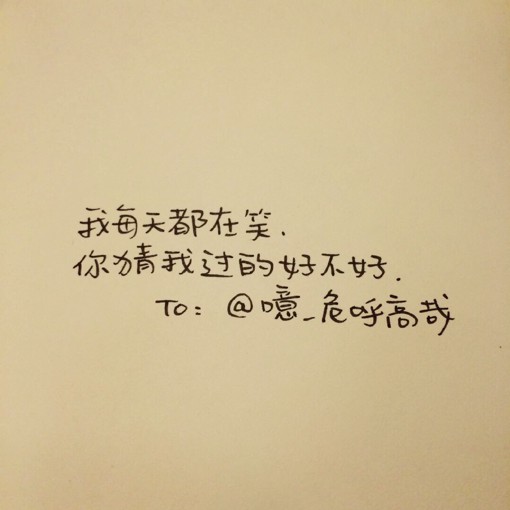 我每天都在笑.
你猜我过的好不好.
TO: @噫_危呼高哉